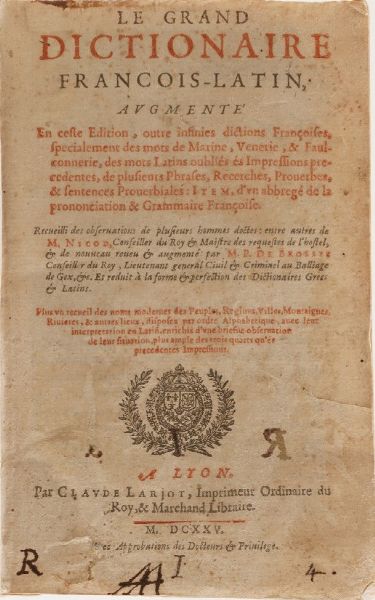 LE GRAND
DICTIONAIRE
FRANCOIS-LATIN,
AVGMENTE'
En ceste Edition, outre infinies dictions Françoises,
specialement des mots de Marine, Venerie, & Faul-
connerie, des mots Latins oubliés és Impressions pre-
cedentes, de plusieurs Phrases, Recerches, Prouerbes,
& sentences Prouerbiales: ITEM, d'vn abbregé de la
prononciation & Grammaire Françoise.
Recueilli des observations de plusieurs hommes doctes: entre autres de
M. NICOD, Conseiller du Roy & Maistre des requestes de l'hostel,
& de nouveau reveu & augmenté par M. P. DE BROSSES
Conseiller du Roy, Lieutenant general Civil & Criminel au Bailliage
de Gex, &c. Et reduit à la forme & perfection des Dictionaires Grecs
& Latins.
Plus vn recueil des noms modernes des Peuples, Regions, Villes, Montaignes,
Riuieres, & autres lieux, disposez par ordre Alphabetique, auec leur
interpretation en Latin, enrichis d'vne briefue obseruation
de leur situation, plus ample des trois quarts qu'és
precedentes Impressions.
I R
A LYON,
Par CLAVDE LARJOT, Imprimeur Ordinaire du
Roy, & Marchand Libraire.
M. DCXXV.
Avec Approbations des Docteurs & Privilege.
R I 4.